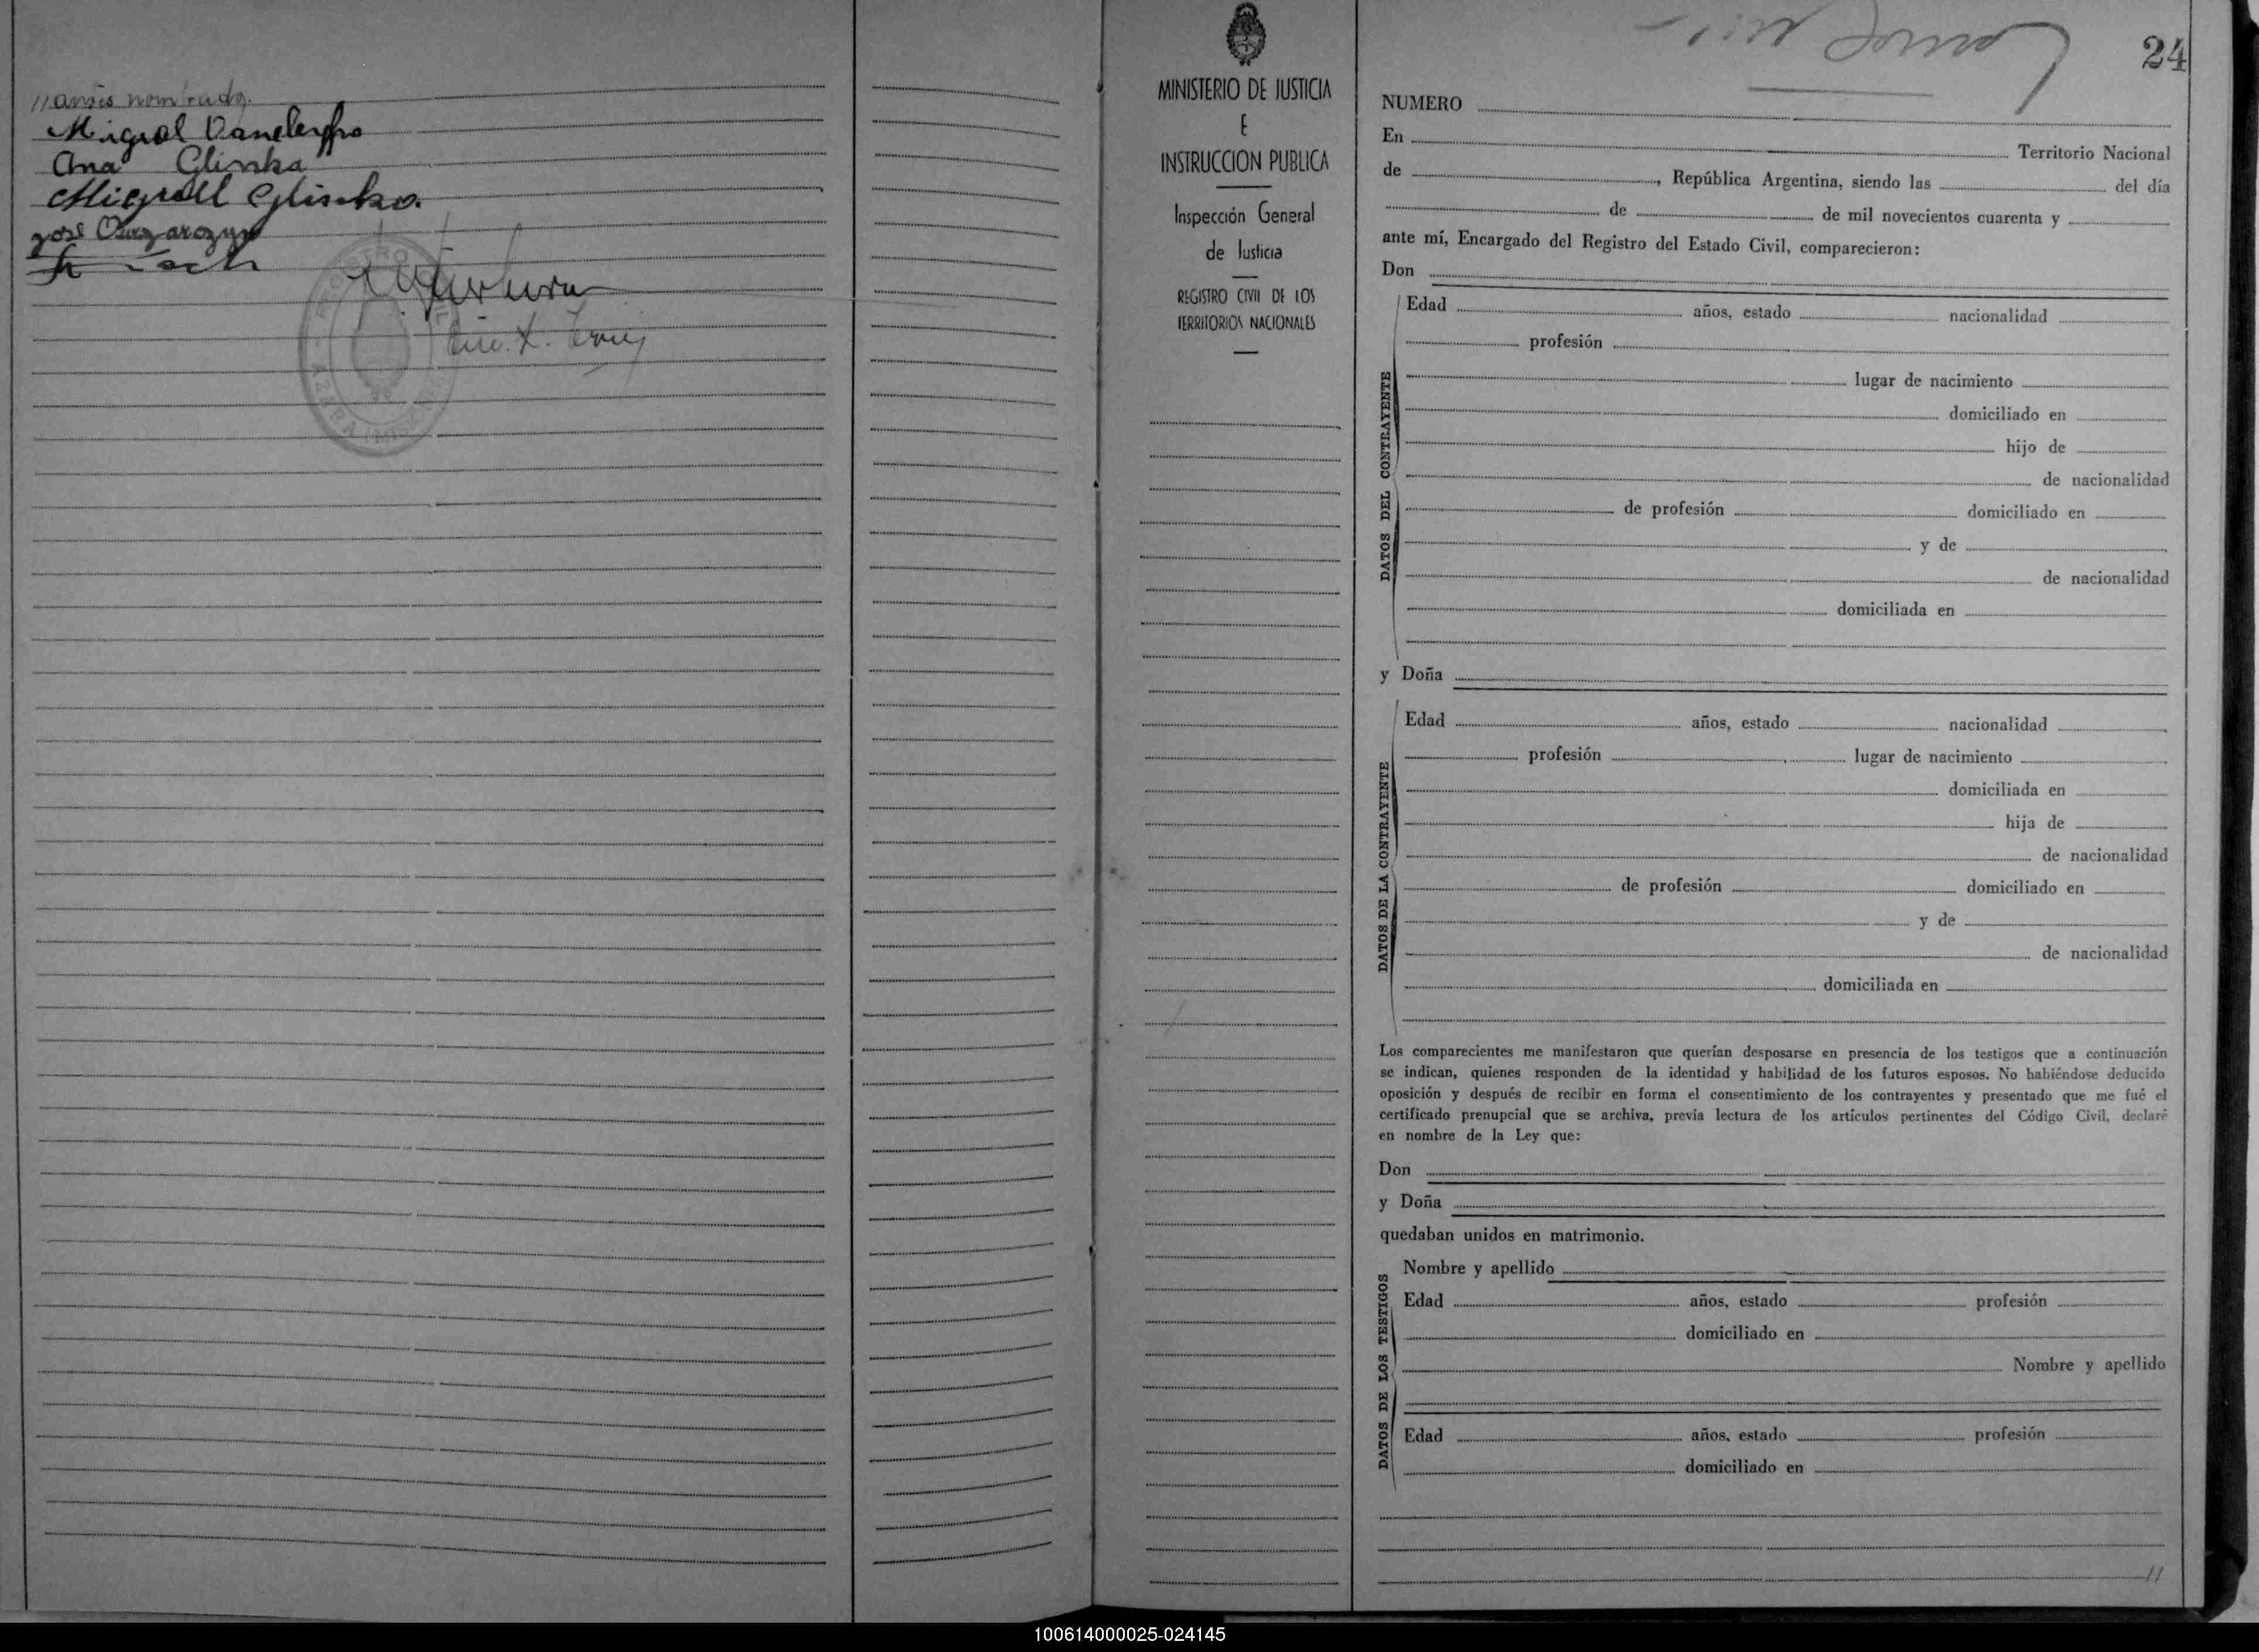 Ana Glinka
MINISTERIO DE JUSTICIA
E
INSTRUCCION PUBLICA
Inspección General
de Justicia
REGISTRO CIVIL DE LOS
TERRITORIOS NACIONALES
24
NUMERO
En Territorio Nacional
de , República Argentina, siendo las del día
de de mil novecientos cuarenta y
ante mí, Encargado del Registro del Estado Civil, comparecieron:
Don
DATOS DEL CONTRAYENTE
Edad años, estado nacionalidad
profesión
lugar de nacimiento
domiciliado en
hijo de
de nacionalidad
de profesión domiciliado en
y de
de nacionalidad
domiciliada en
y Doña
DATOS DE LA CONTRAYENTE
Edad años, estado nacionalidad
profesión lugar de nacimiento
domiciliada en
hija de
de nacionalidad
de profesión domiciliado en
y de
de nacionalidad
domiciliada en
Los comparecientes me manifestaron que querían desposarse en presencia de los testigos que a continuación
se indican, quienes responden de la identidad y habilidad de los futuros esposos. No habiéndose deducido
oposición y después de recibir en forma el consentimiento de los contrayentes y presentado que me fué el
certificado prenupcial que se archiva, previa lectura de los artículos pertinentes del Código Civil, declaré
en nombre de la Ley que:
Don
y Doña
quedaban unidos en matrimonio.
DATOS DE LOS TESTIGOS
Nombre y apellido
Edad años, estado profesión
domiciliado en
Nombre y apellido
Edad años, estado profesión
domiciliado en
100614000025-024145